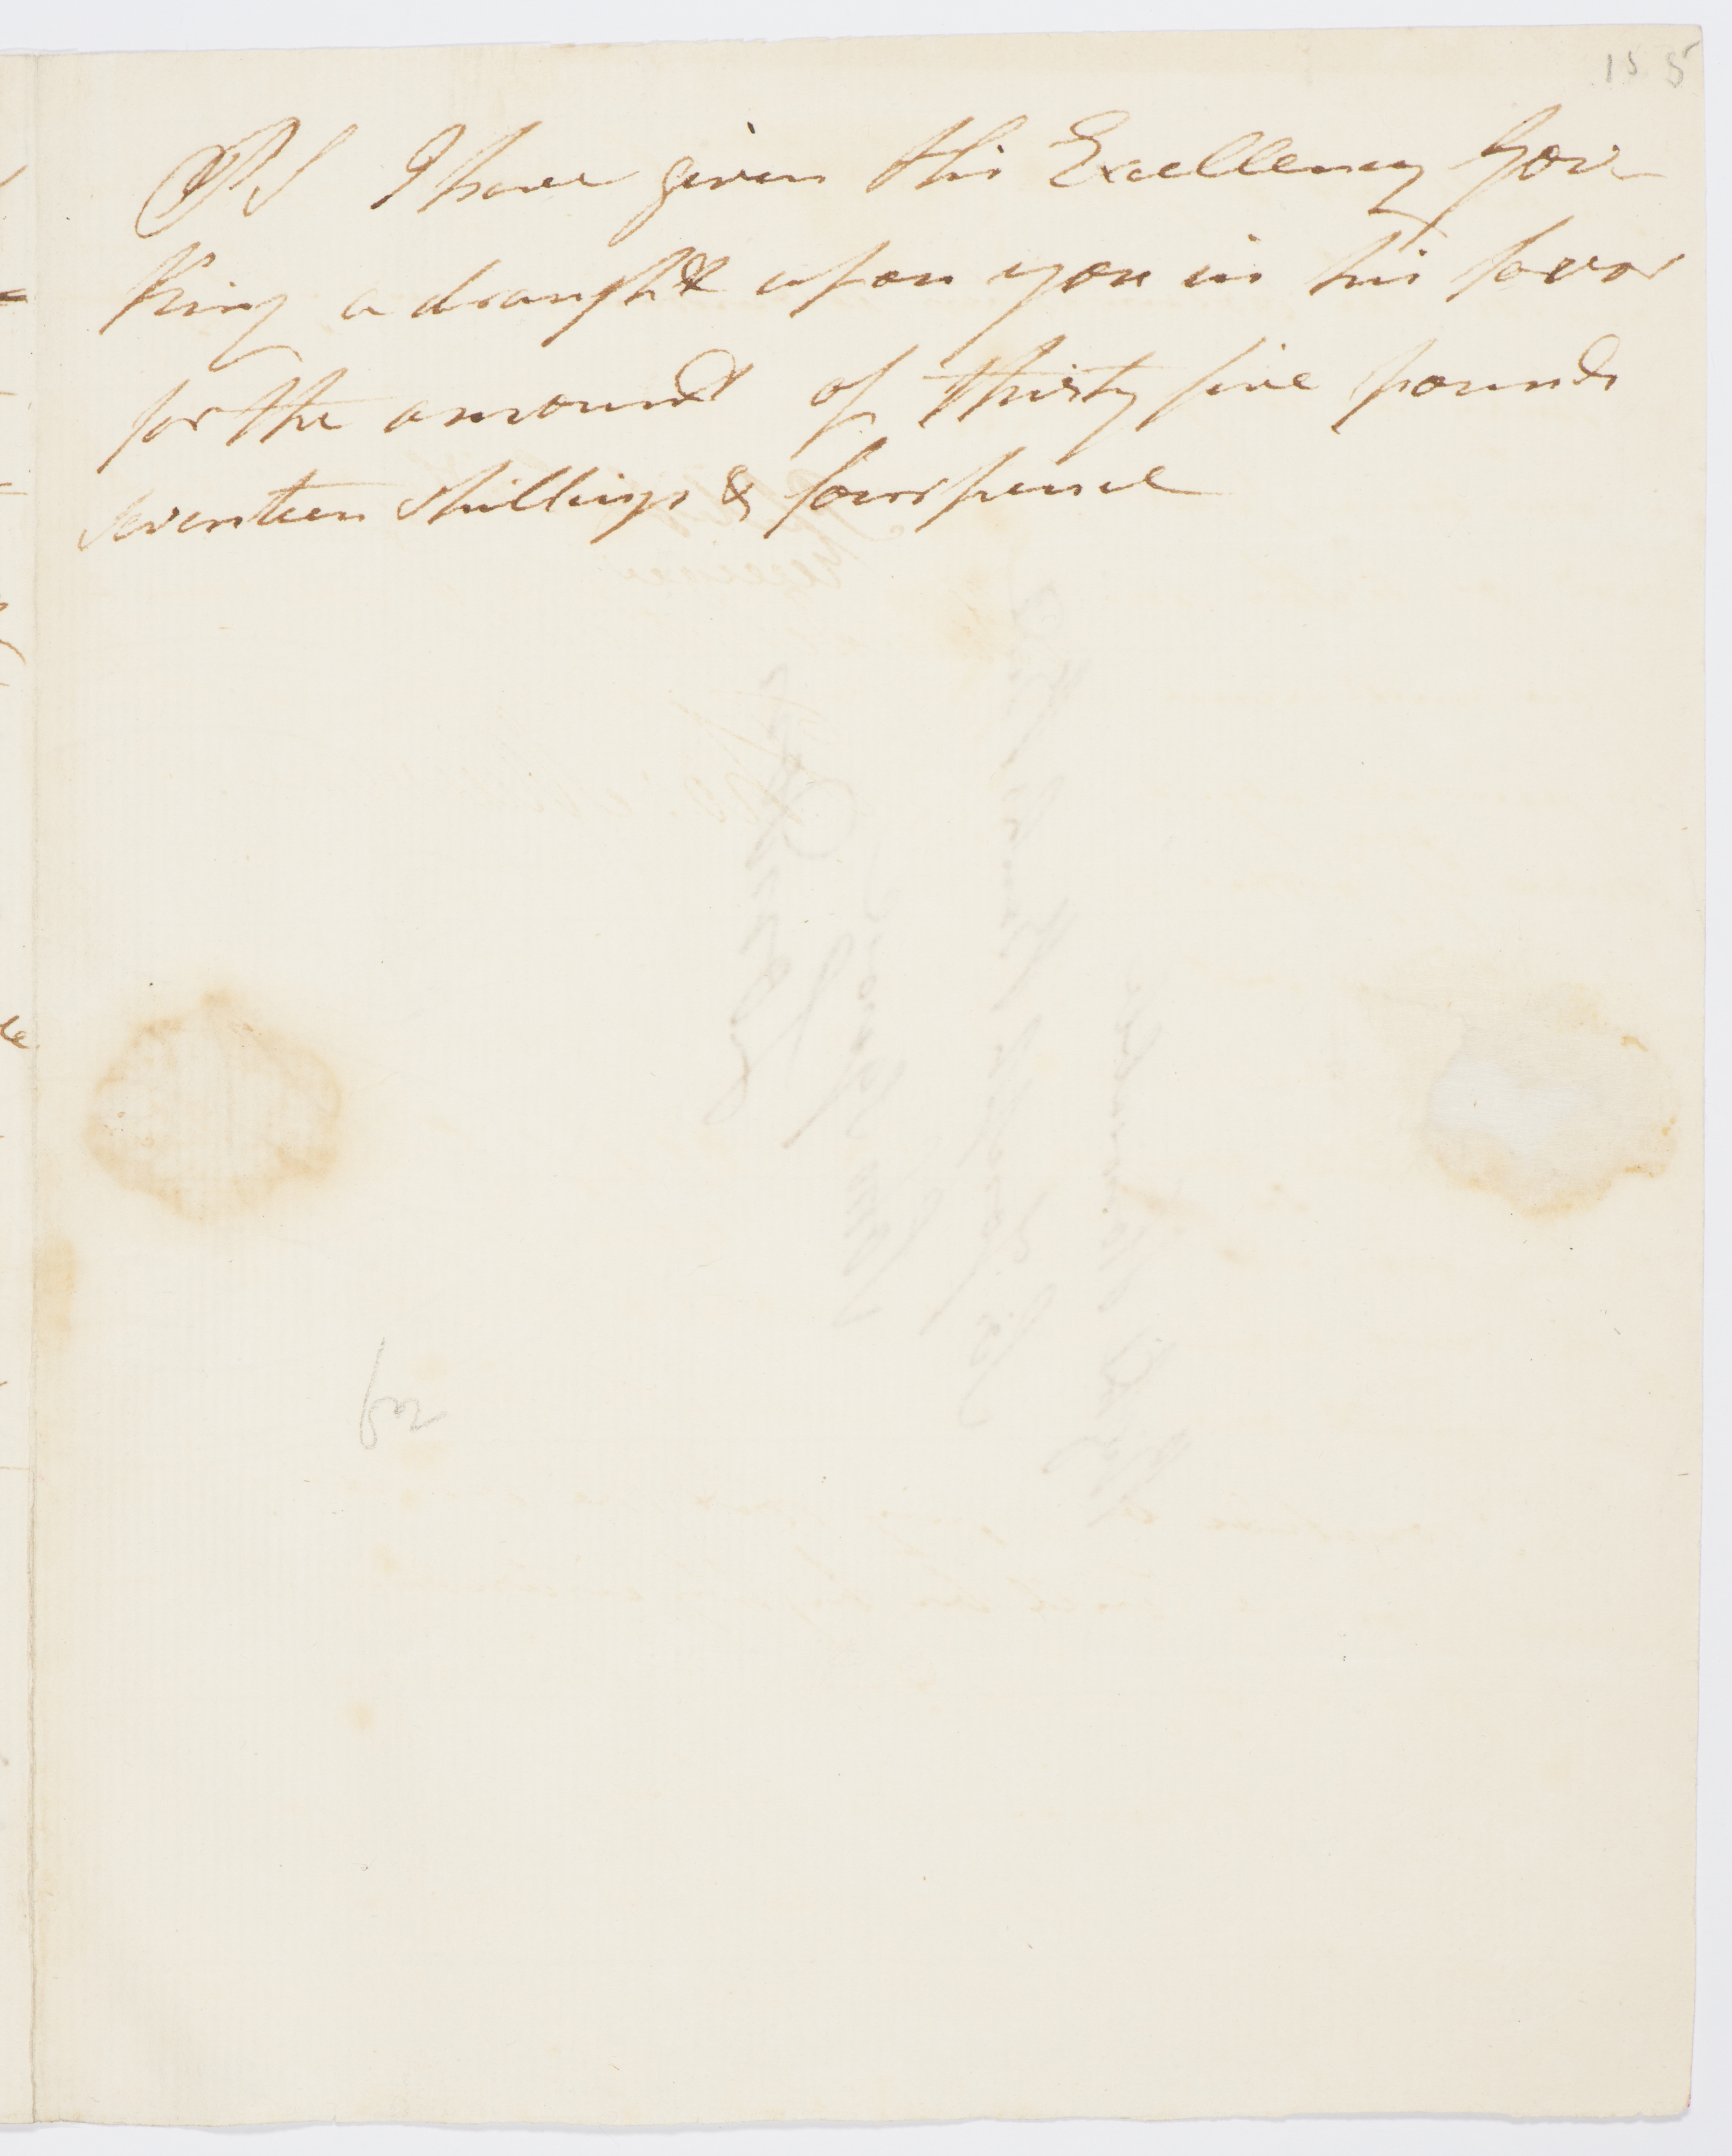 155
PS I have given His Excellency Gov
King a draught upon you in his favor
for the amount of thirty five pounds
seventeen Shillings & fourpence